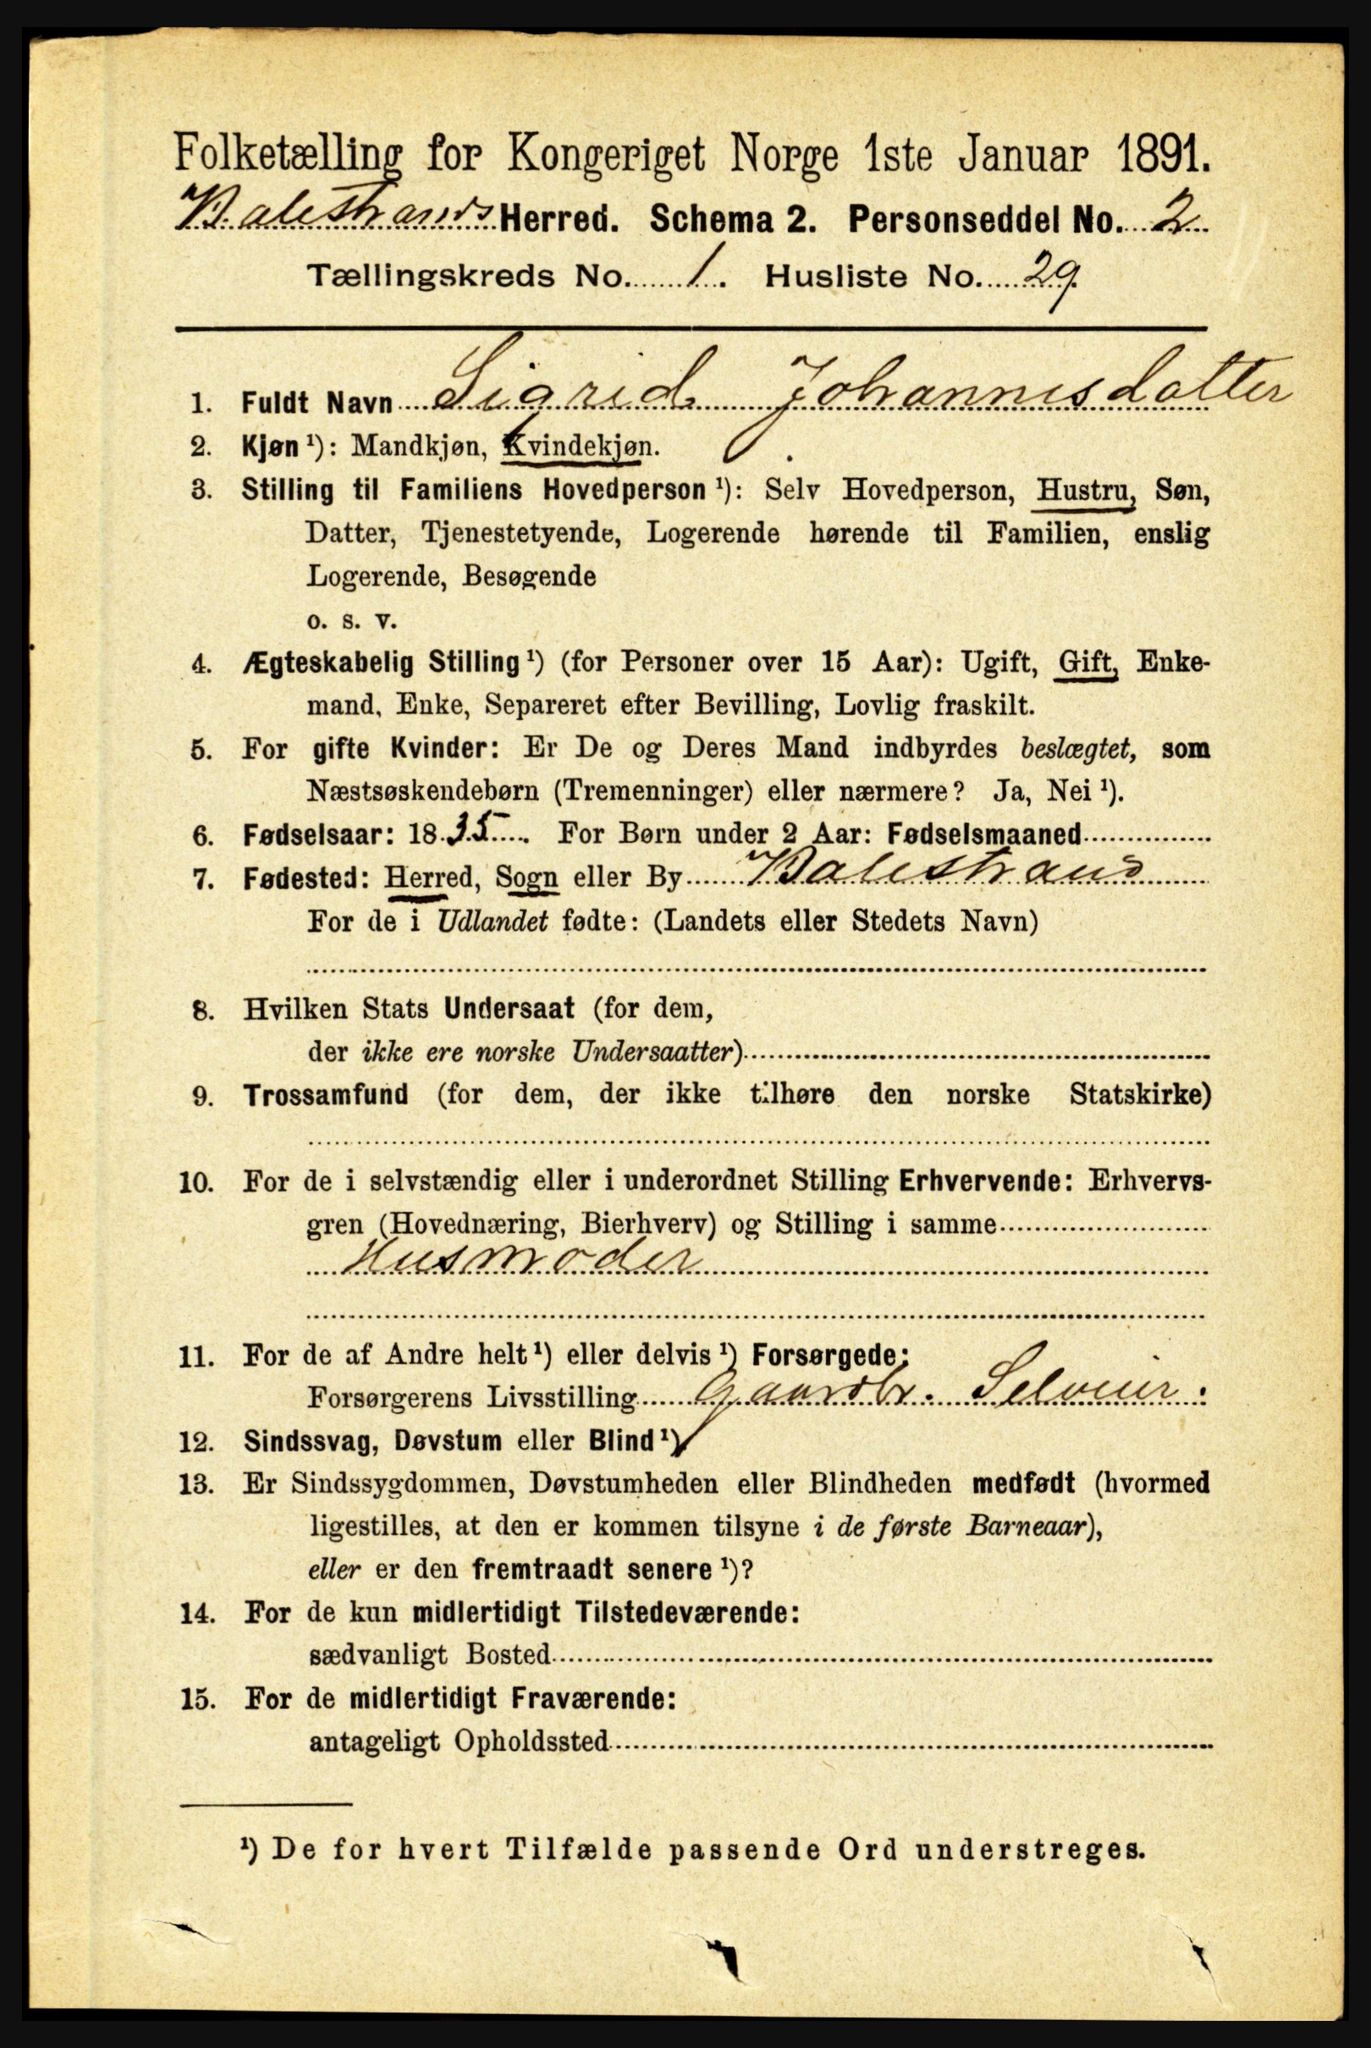 Folketælling for Kongeriget Norge 1ste Januar 1891.
Balestrands Herred. Schema 2. Personseddel No. 2
Tællingskreds No. 1. Husliste No. 29.
1. Fuldt Navn Sigrid Johannesdatter
2. Kjøn ¹): Mandkjøn, Kvindekjøn.
3. Stilling til Familiens Hovedperson ¹): Selv Hovedperson, Hustru, Søn,
Datter, Tjenestetyende, Logerende hørende til Familien, enslig
Logerende, Besøgende
o. s. v.
4. Ægteskabelig Stilling ¹) (for Personer over 15 Aar): Ugift, Gift, Enke-
mand, Enke, Separeret efter Bevilling, Lovlig fraskilt.
5. For gifte Kvinder: Er De og Deres Mand indbyrdes beslægtet, som
Næstsøskendebørn (Tremenninger) eller nærmere? Ja, Nei ¹).
6. Fødselsaar: 1835. For Børn under 2 Aar: Fødselsmaaned
7. Fødested: Herred, Sogn eller By Balestrand
For de i Udlandet fødte: (Landets eller Stedets Navn)
8. Hvilken Stats Undersaat (for dem,
der ikke ere norske Undersaatter)
9. Trossamfund (for dem, der ikke tilhøre den norske Statskirke)
10. For de i selvstændig eller i underordnet Stilling Erhvervende: Erhvervs-
gren (Hovednæring, Bierhverv) og Stilling i samme
Husmoder
11. For de af Andre helt ¹) eller delvis ¹) Forsørgede:
Forsørgerens Livsstilling Gaardbr. Selveier.
12. Sindssvag, Døvstum eller Blind ¹)
13. Er Sindssygdommen, Døvstumheden eller Blindheden medfødt (hvormed
ligestilles, at den er kommen tilsyne i de første Barneaar),
eller er den fremtraadt senere ¹)?
14. For de kun midlertidigt Tilstedeværende:
sædvanligt Bosted
15. For de midlertidigt Fraværende:
antageligt Opholdssted
¹) De for hvert Tilfælde passende Ord understreges.